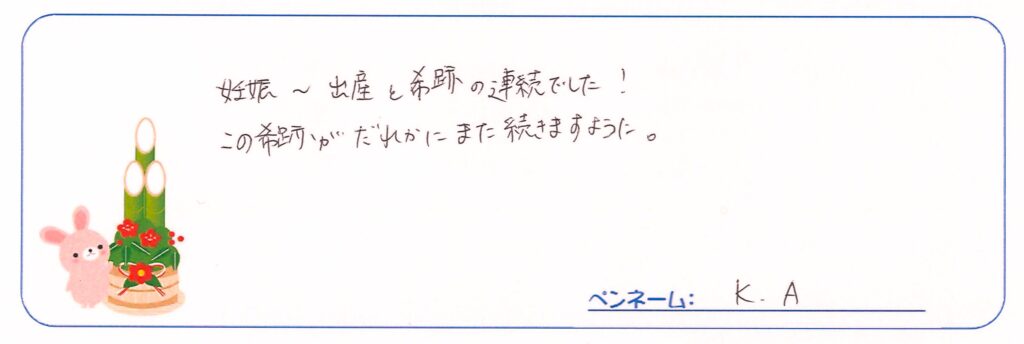 妊娠～出産と希跡の連続でした!
この希跡がだれかにまた続きますように。
ペンネーム: K. A